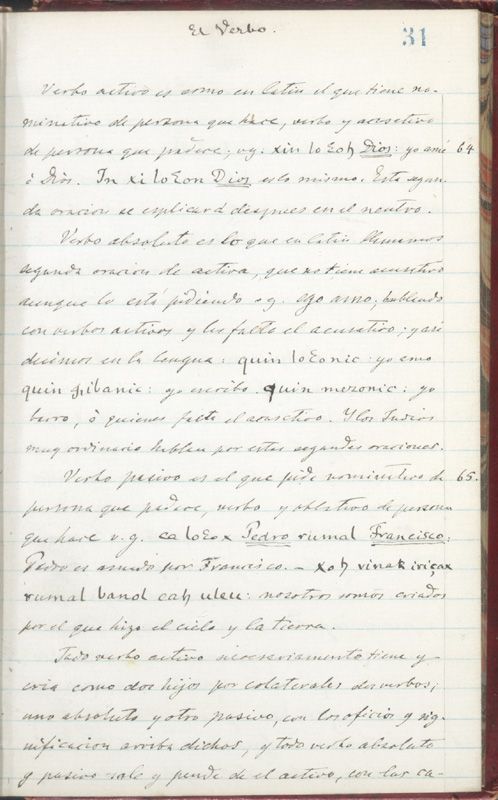 El Verbo.
31
Verbo activo es como en latin el que tiene no-
minativo de persona que hace, verbo y acusativo
de persona que padece; vg. xin loɛoh Dios: yo amé 64
á Diós. In xi loɛon Dios es lo mismo. Esta segun-
da oracion se esplicará despues en el neutro.
Verbo absoluto es lo que en latin llamamos
segunda oracion de activa, que no tiene acusativo
aunque lo está pidiendo v g. ego amo; hablando
con verbos activos y les falta el acusativo; y asi
decimos en la lengua: quin loɛonic: yo amo
quin ꜭhibanic: yo escribo. quin mezonic: yo
barro, á quienes falta el acusativo. Y los Indios
muy ordinario hablan por estas segundas oraciones.
Verbo pasivo es el que pide nominativo de 65.
persona que padece, verbo y ablativo de persona
que hace v. g. ca loɛox Pedro rumal Francisco:
Pedro es amado por Francisco. – xoh vinak iriçax
rumal banol cah uleu: nosotros somos criados
por el que hizo el cielo y la tierra.
Todo verbo activo necesariamente tiene y
cria como dos hijos por colaterales dos verbos;
uno absoluto y otro pasivo, con los oficios y sig-
nificacion arriba dichos, y todo verbo absoluto
y pasivo sale y pende de el activo, con las ca-